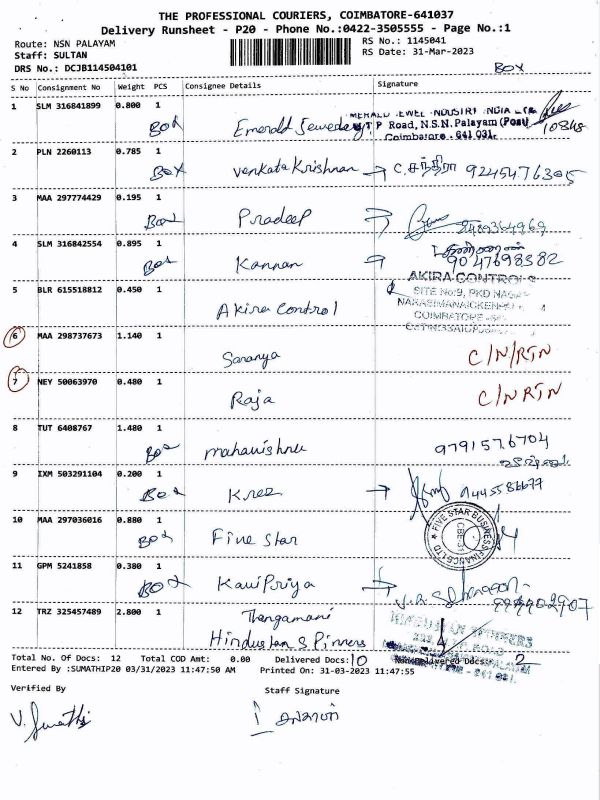 THE PROFESSIONAL COURIERS, COIMBATORE-641037
Delivery Runsheet - P20 - Phone No.:0422-3505555 - Page No.:1
Route: NSN PALAYAM
RS No.: 1145041
Staff: SULTAN
RS Date: 31-Mar-2023
DRS No.: DCJB114504101
BOX
S No Consignment No Weight PCS Consignee Details Signature
1 SLM 316841899 0.800 1
BOX Emerald Jewedery
Road, N.S.N. Palayam (Post)
Coimbatore - 641 031.
10848
2 PLN 2260113 0.785 1
BOX Venkata Krishnan → C. சந்திரா 9224547 6305
3 MAA 297774429 0.195 1
BOX Pradeep
4 SLM 316842554 0.895 1
BOX Kannan 9047698382
5 BLR 615518812 0.450 1
Akira Control
AKIRA CONTROLS
SITE No:9, PKD NAGAR
6 MAA 298737673 1.140 1
Saranya C/N/RTN
7 NEY 50063970 0.480 1
Raja C/N RTN
8 TUT 6408767 1.480 1
BOX mahavishnu 9791576704
9 IXM 503291104 0.200 1
BOX Krez → 9445586677
10 MAA 297036016 0.880 1
BOX Five Star
FIVE STAR BUSINESS FINANCE LTD
11 GPM 5241858 0.380 1
BOX KaviPriya →
12 TRZ 325457489 2.800 1
Thangamani
Hindustan Spinners
Total No. Of Docs: 12 Total COD Amt: 0.00 Delivered Docs: 10 2
Entered By :SUMATHIP20 03/31/2023 11:47:50 AM Printed On: 31-03-2023 11:47:55
Verified By Staff Signature
V. Sumathi